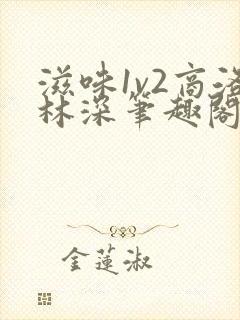 滋味1v2高洛
林深笔趣阁
金莲淑